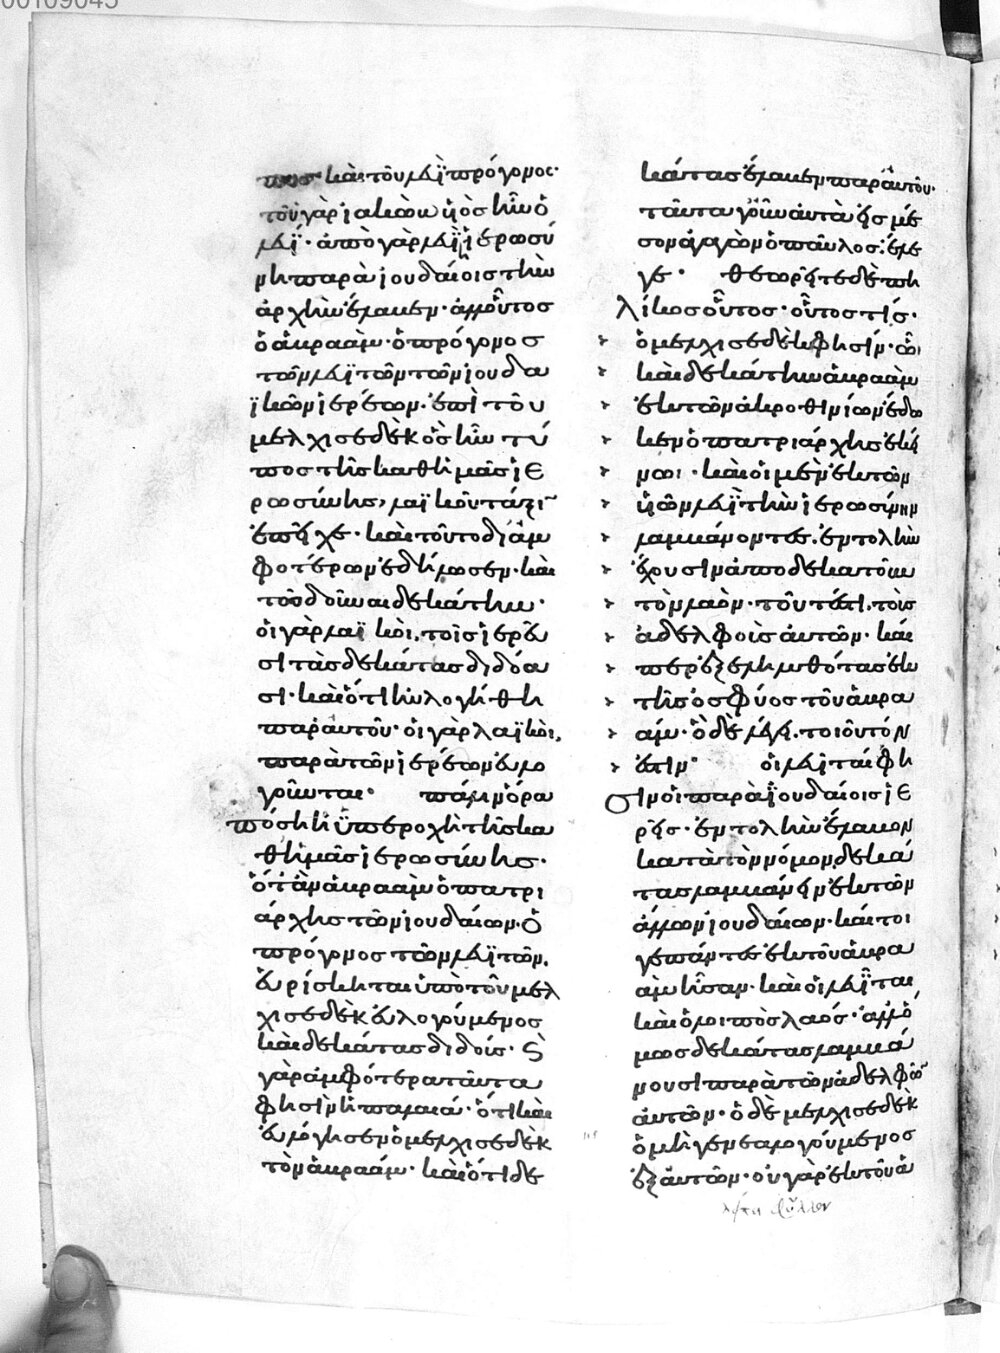 00109045
καὶ τοῦ λευῒ πρόγονος·
τοῦ γὰρ ἰακὼβ υἱὸς ἦν ὁ
λευΐ· ἀπὸ γὰρ λευῒ ἱερωσύ
νη παρὰ ἰουδαίοις τὴν
ἀρχὴν ἔλαβεν· ἀλλ' οὗτος
ὁ ἀβραὰμ· ὁ πρόγονος
τῶν λευϊτῶν τῶν ἰουδα
ϊκῶν ἱερέων· ἐπὶ τοῦ
μελχισεδὲκ ὃς ἦν τύ
πος τῆς καθ' ἡμᾶς ἱε
ρωσύνης, λαϊκοῦ τάξιν
ἐπεῖχε· καὶ τοῦτο δι' ἀμ
φοτέρων ἐδήλωσεν· καὶ
τοῦ δοῦναι δεκάτην·
οἱ γὰρ λαϊκοὶ, τοῖς ἱερεῦ
σι τὰς δεκάτας διδόα
σι· καὶ ὅτι ηὐλογήθη
παρ' αὐτοῦ· οἱ γὰρ λαϊκοὶ,
παρὰ τῶν ἱερέων εὐλο
γοῦνται· πάλιν ὅρα
πόση ἡ ὑπεροχὴ τῆς κα
θ' ἡμᾶς ἱερωσύνης·
ὅταν ἀβραὰμ ὁ πατρι
άρχης τῶν ἰουδαίων· ὁ
πρόγονος τῶν λευϊτῶν,
εὑρίσκηται ὑπὸ τοῦ μελ
χισεδὲκ εὐλογούμενος
καὶ δεκάτας διδούς· ϛ
γὰρ ἀμφότερα ταῦτα
φησὶν ἡ παλαιά· ὅτι καὶ
εὐλόγησεν ὁ μελχισεδὲκ
τὸν ἀβραάμ· καὶ ὅτι δε
κάτας ἔλαβεν παρ' αὐτοῦ·
ταῦτα γοῦν αὐτὰ εἰς μέ
σον ἀγαγὼν ὁ παῦλος ἔλε
γε· θεωρεῖτε δὲ πη
λίκος οὗτος· οὗτος τίς·
ὁ μελχισεδὲκ φησίν· ᾧ
καὶ δεκάτην ἀβραὰμ
ἐκ τῶν ἀκροθινίων ἔδω
κεν ὁ πατριάρχης ἐκεί
νῳ· καὶ οἱ μὲν ἐκ τῶν
υἱῶν λευῒ τὴν ἱερωσύνην
λαμβάνοντες· ἐντολὴν
ἔχουσιν ἀποδεκατοῦν
τὸν λαὸν· τοῦτέστι, τοὺς
ἀδελφοὺς αὐτῶν· καί
περ ἐξεληλυθότας ἐκ
τῆς ὀσφύος τοῦ ἀβρα
άμ· ὁ δὲ λέγει, τοιοῦτόν
ἐστιν· οἱ λευῖται φη
σὶν οἱ παρὰ ἰουδαίοις ἱε
ρεῖς· ἐντολὴν ἔλαβον
κατὰ τὸν νόμον δεκά
τας λαμβάνειν ἐκ τῶν
ἄλλων ἰουδαίων· καίτοι
γε πάντες ἐκ τοῦ ἀβρα
ὰμ ἦσαν· καὶ οἱ λευῗται,
καὶ ὁ λοιπὸς λαός· ἀλλ' ὅ
μως δεκάτας λαμβά
νουσι παρὰ τῶν ἀδελφῶν
αὐτῶν· ὁ δὲ μελχισεδὲκ
ὁ μὴ γενεαλογούμενος
ἐξ αὐτῶν· οὐ γὰρ ἐκ τοῦ ἀ
λείπει φύλλον